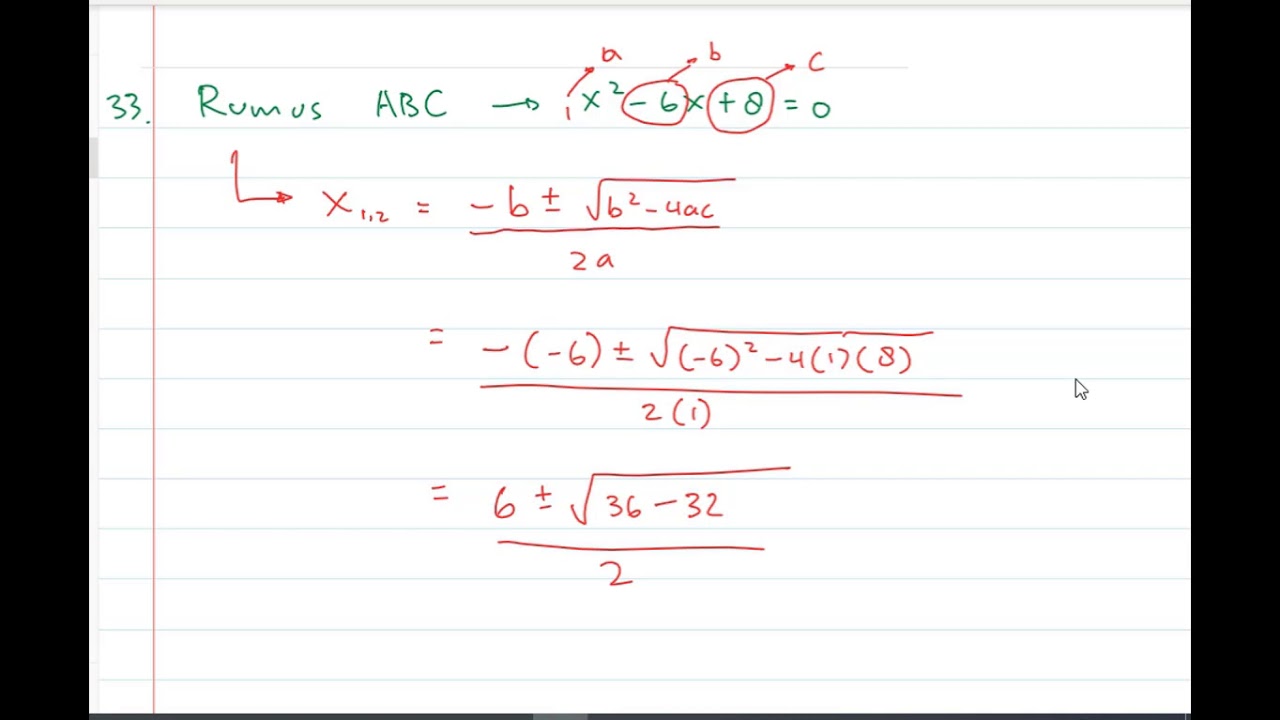 a b c
33. Rumus ABC → 1x² - 6x + 8 = 0
x₁,₂ = -b ± √b² - 4ac
2a
= -(-6) ± √(-6)² - 4(1)(8)
2(1)
= 6 ± √36 - 32
2